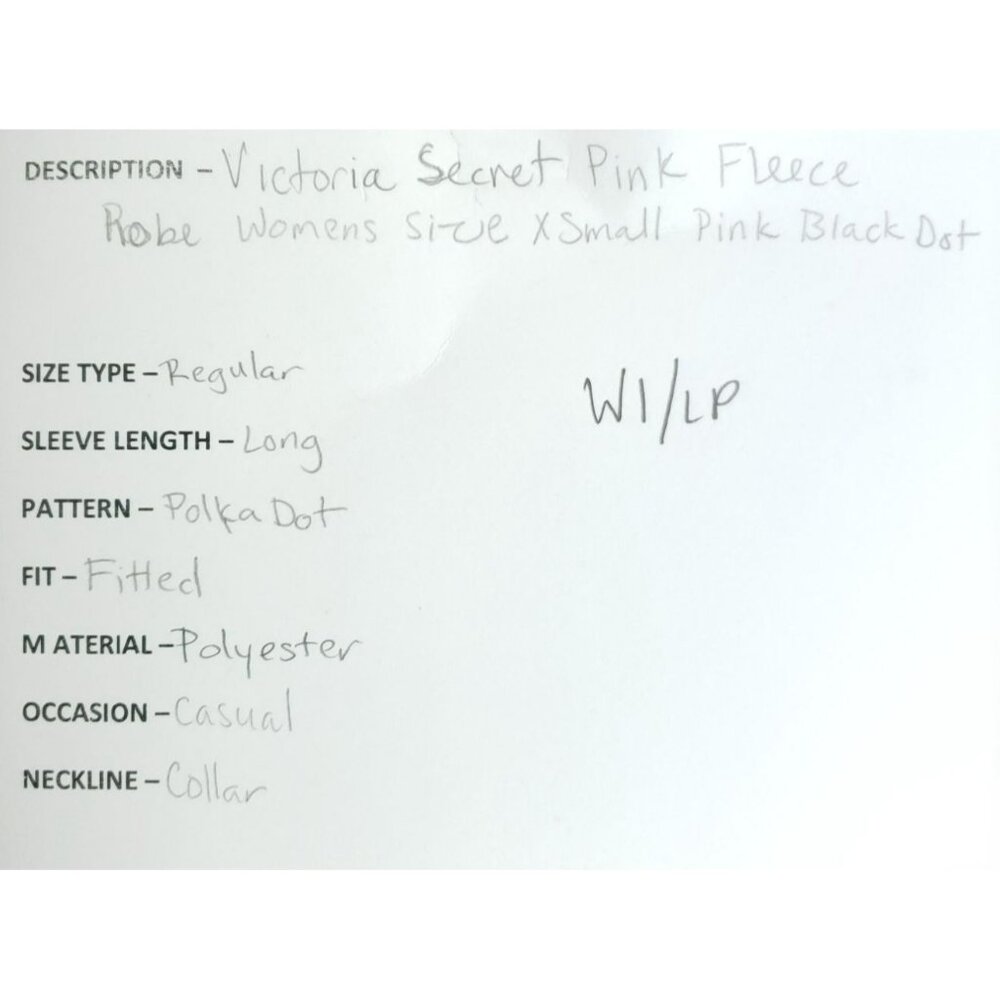 DESCRIPTION - Victoria Secret Pink Fleece
Robe Womens Size XSmall Pink Black Dot
SIZE TYPE – Regular
W1/LP
SLEEVE LENGTH – Long
PATTERN – Polka Dot
FIT – Fitted
M ATERIAL – Polyester
OCCASION – Casual
NECKLINE – Collar